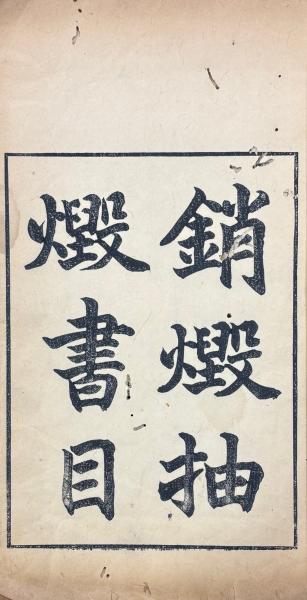 銷燬抽
燬書目